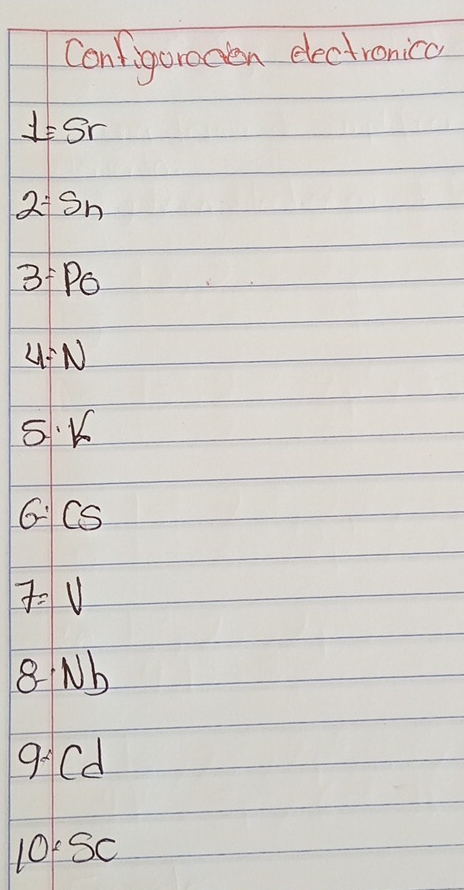 Configuración electronica
1= Sr
2= Sn
3= Po
4= N
5. K
6. Cs
7= V
8. Nb
9. Cd
10. Sc